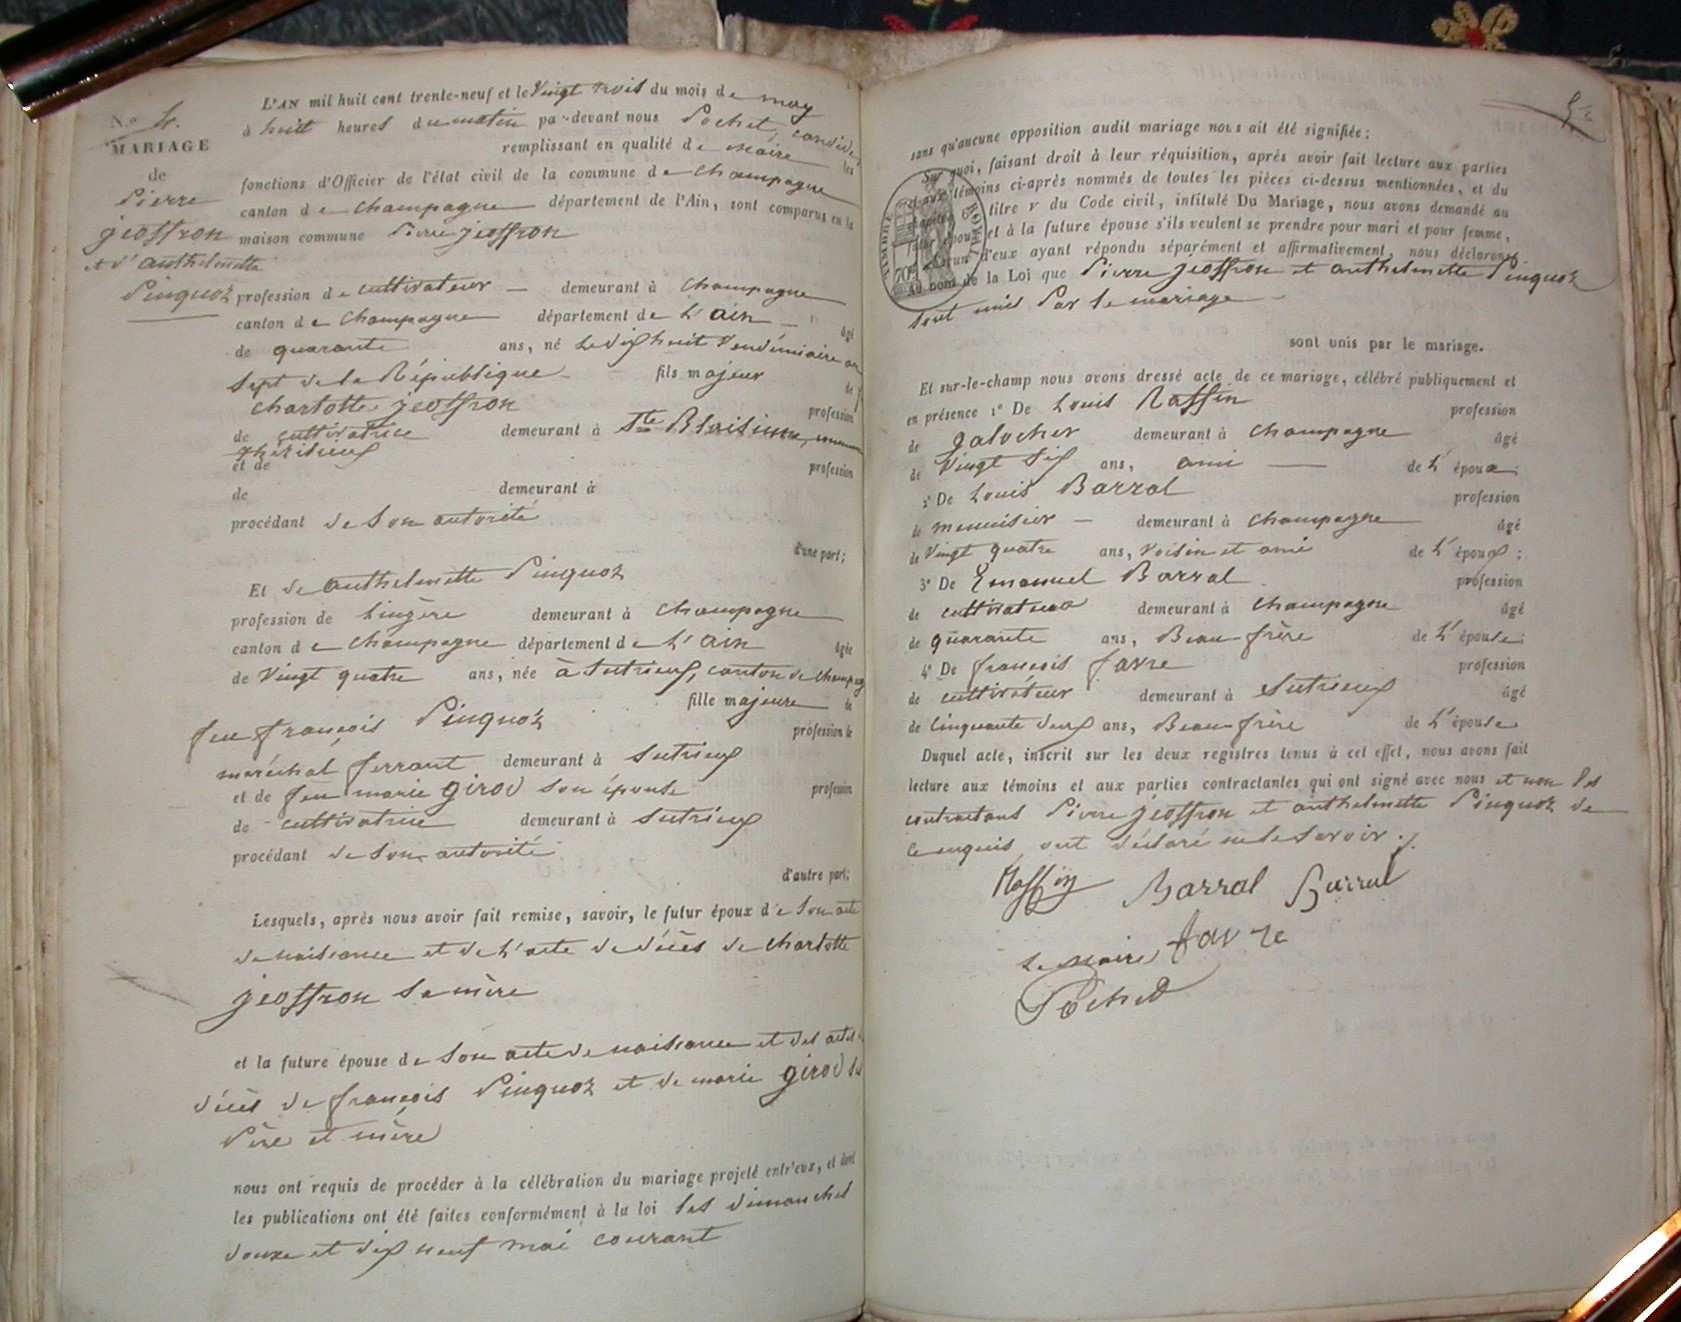 N.o 4.
MARIAGE
de
Pierre
jeoffron
et d'anthelmette
Pinquoz
L'AN mil huit cent trente-neuf et le Vingt trois du mois de may
à huit heures du matin par-devant nous Pochet,
remplissant en qualité de Maire les
fonctions d'Officier de l'état civil de la commune de Champagne
canton de Champagne département de l'Ain, sont comparus en la
maison commune Pierre jeoffron
profession de cultivateur — demeurant à Champagne
canton de Champagne département de L'ain — âgé
de quarante ans, né Le dix huit Vendémiaire an
sept de la République fils majeur de
Charlotte jeoffron profession
de cultivatrice demeurant à Ste Blaisinne,
et de profession
de demeurant à
procédant de Son autorité
d'une part;
Et de anthelmette Pinquoz
profession de Lingère demeurant à Champagne
canton de Champagne département de L'ain âgée
de Vingt quatre ans, née à Sutrieux, canton de Champag
fille majeure de
feu françois Pinquoz profession de
maréchal ferrant demeurant à Sutrieux
et de feu marie girod son épouse profession
de cultivatrice demeurant à Sutrieux
procédant de Son autorité
d'autre part;
Lesquels, après nous avoir fait remise, savoir, le futur époux de Son acte
de naissance et de L'acte de décès de Charlotte
jeoffron Sa mère
et la future épouse de Son acte de naissance et des actes
décès de françois Pinquoz et de marie girod Ses
Père et mère
nous ont requis de procéder à la célébration du mariage projeté entr'eux, et dont
les publications ont été faites conformément à la loi Les dimanches
douze et dix neuf mai courant
5
sans qu'aucune opposition audit mariage nous ait été signifiée;
Sur quoi, faisant droit à leur réquisition, après avoir fait lecture aux parties
et aux témoins ci-après nommés de toutes les pièces ci-dessus mentionnées, et du
chapitre 6 titre v du Code civil, intitulé Du Mariage, nous avons demandé au
futur époux et à la future épouse s'ils veulent se prendre pour mari et pour femme,
chacun d'eux ayant répondu séparément et affirmativement, nous déclarons
au nom de la Loi que Pierre jeoffron et anthelmette Pinquoz
Sont unis Par le mariage —
TIMBRE ROYAL
70
sont unis par le mariage.
Et sur-le-champ nous avons dressé acte de ce mariage, célébré publiquement et
en présence 1° De Louis Raffin profession
de galocher demeurant à Champagne âgé
de Vingt Six ans, ami — de L' époux;
2° De Louis Barral profession
de menuisier — demeurant à Champagne âgé
de Vingt quatre ans, Voisin et ami de L' époux;
3° De Emanuel Barral profession
de cultivateur demeurant à Champagne âgé
de quarante ans, Beau frère de L'épouse;
4° De françois favre profession
de cultivateur demeurant à Sutrieux âgé
de Cinquante deux ans, Beau frère de L'épouse
Duquel acte, inscrit sur les deux registres tenus à cet effet, nous avons fait
lecture aux témoins et aux parties contractantes qui ont signé avec nous et non Les
contractans Pierre jeoffron et anthelmette Pinquoz de
ce enquis ont déclaré ne le Savoir.
Raffin Barral Barral
Favre
Le Maire
Pochet